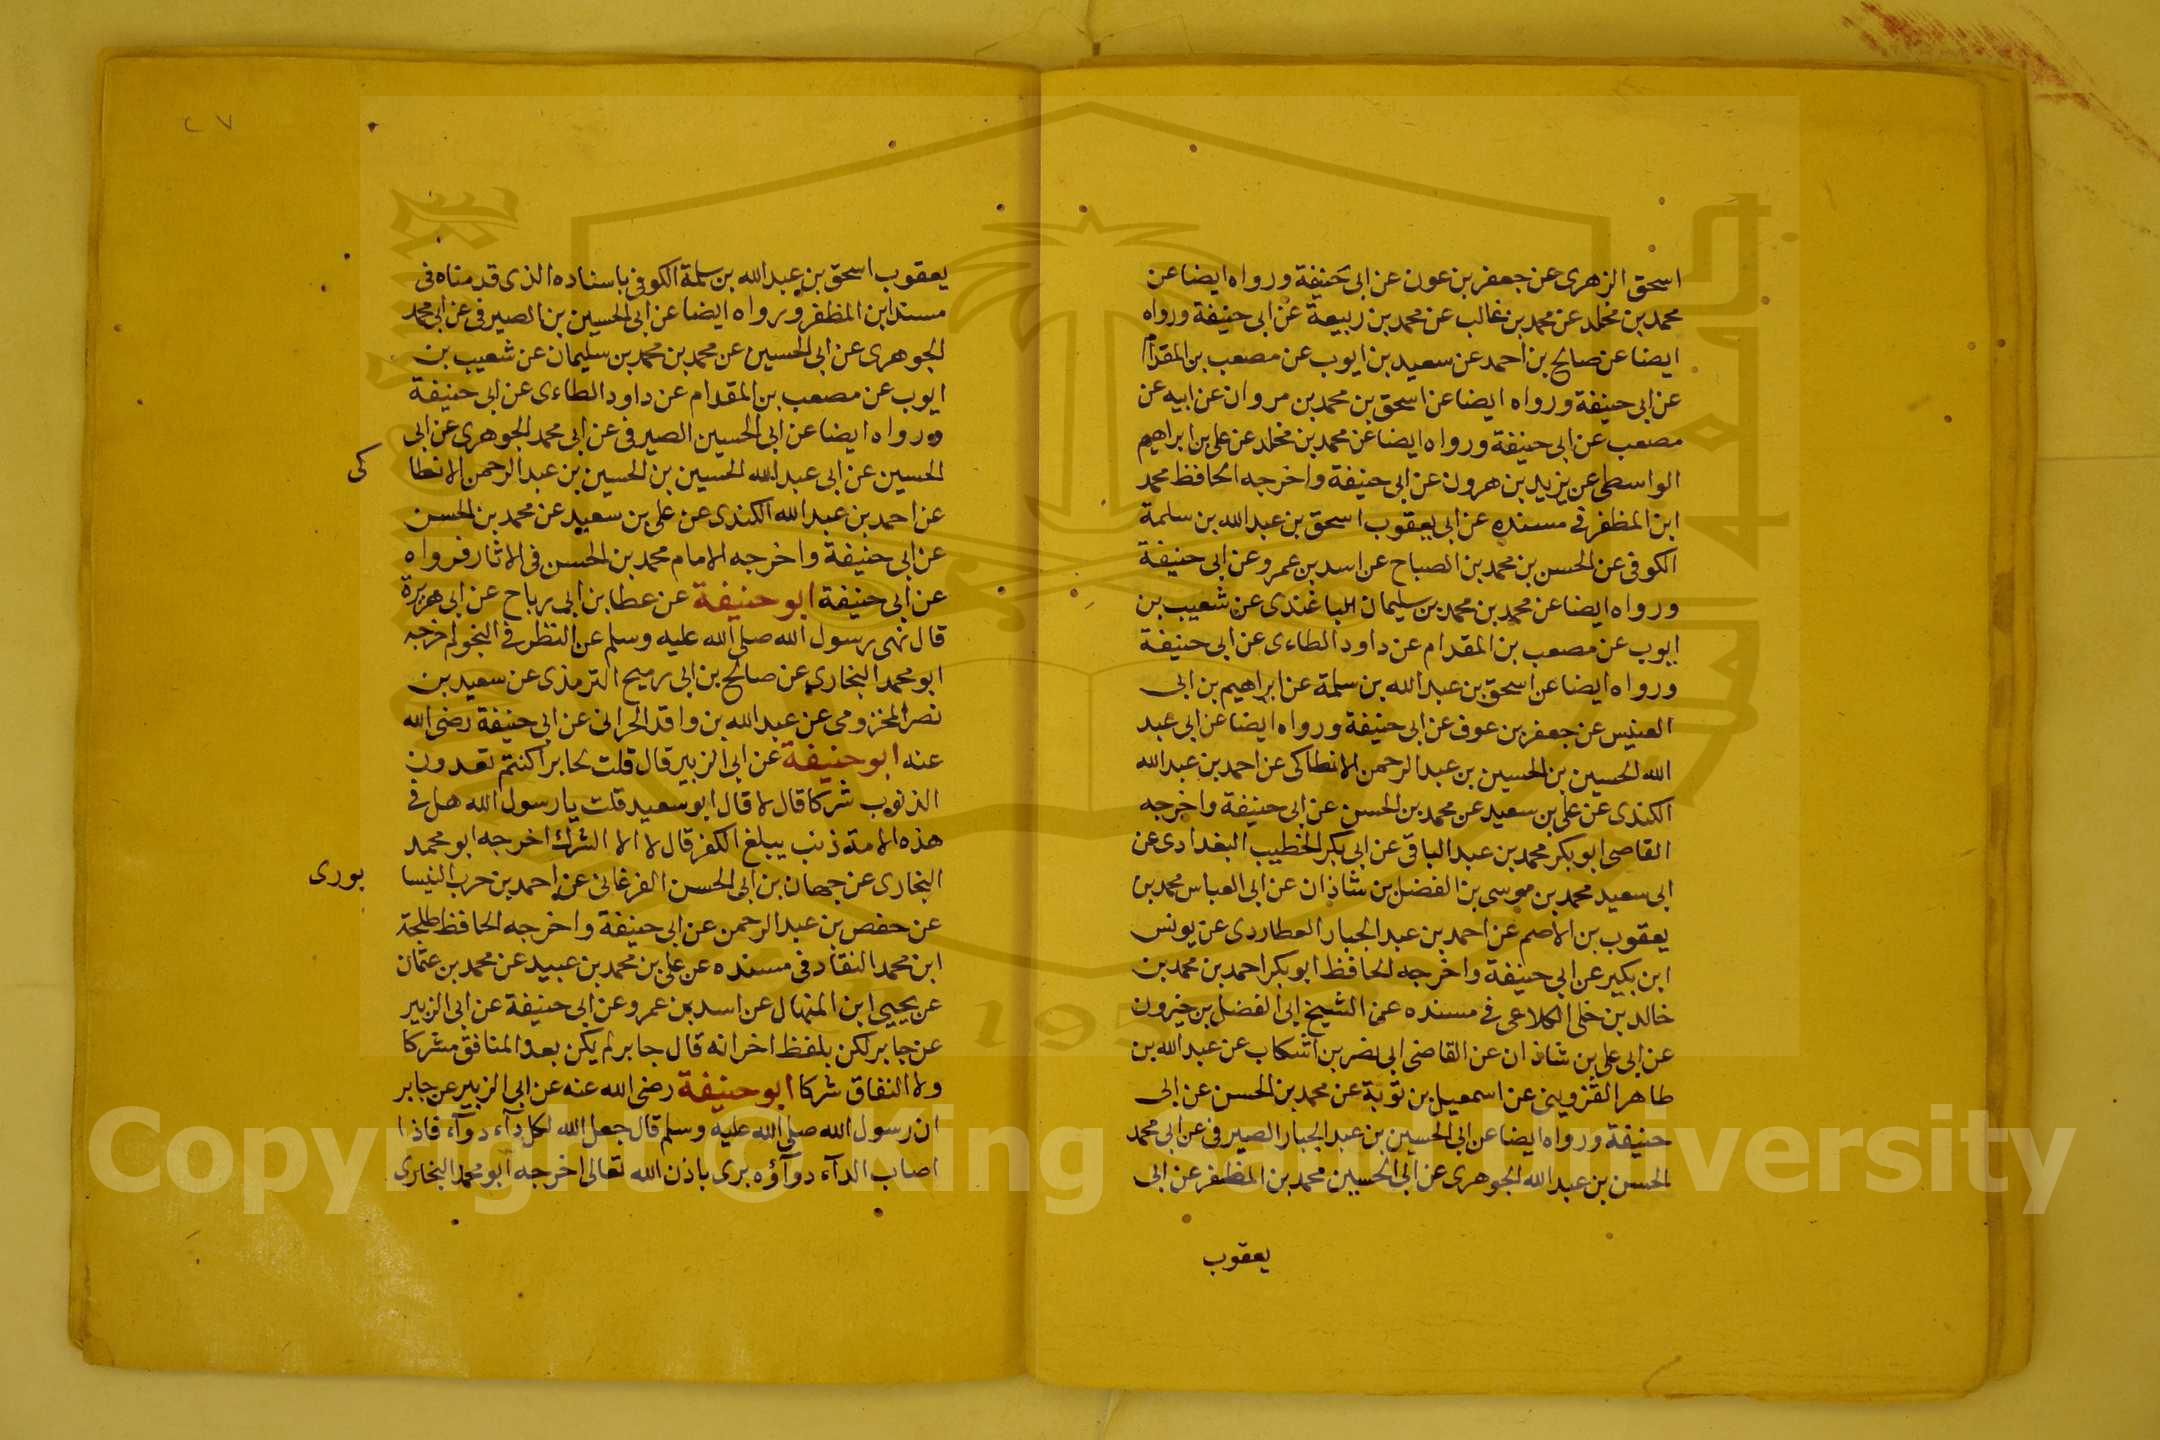 اسحق الزهرى عن جعفر بن عون عن ابى حنيفة ورواه ايضا عن
محمد بن مخلد عن محمد بن غالب عن محمد بن ربيعة عن ابى حنيفة ورواه
ايضا عن صالح بن احمد عن سعيد بن ايوب عن مصعب بن المقدام
عن ابى حنيفة ورواه ايضا عن اسحق بن محمد بن مروان عن ابيه عن
مصعب عن ابى حنيفة ورواه ايضا عن محمد بن مخلد عن على بن ابراهيم
الواسطى عن يزيد بن هرون عن ابى حنيفة واخرجه الحافظ محمد
ابن المظفر فى مسنده عن ابى يعقوب اسحق بن عبد الله بن سلمة
الكوفى عن الحسن بن محمد بن الصباح عن اسد بن عمرو عن ابى حنيفة
ورواه ايضا عن محمد بن محمد بن سليمان الباغندى عن شعيب بن
ايوب عن مصعب بن المقدام عن داود الطاءى عن ابى حنيفة
ورواه ايضا عن اسحق بن عبد الله بن سلمة عن ابراهيم بن ابى
العنبس عن جعفر بن عوف عن ابى حنيفة ورواه ايضا عن ابى عبد
الله الحسين بن الحسين بن عبد الرحمن الانطاكى عن احمد بن عبد الله
الكندى عن على بن سعيد عن محمد بن الحسن عن ابى حنيفة واخرجه
القاضى ابو بكر محمد بن عبد الباقى عن ابى بكر الخطيب البغدادى عن
ابى سعيد محمد بن موسى بن الفضل بن شاذان عن ابى العباس محمد بن
يعقوب بن الاصم عن احمد بن عبد الجبار العطاردى عن يونس
ابن بكير عن ابى حنيفة واخرجه الحافظ ابو بكر احمد بن محمد بن
خالد بن خلى الكلاعى فى مسنده عن الشيخ ابى الفضل بن خيرون
عن ابى على بن شاذان عن القاضى ابى نصر بن اشكاب عن عبد الله بن
طاهر القزوينى عن اسمعيل بن توبة عن محمد بن الحسن عن ابى
حنيفة ورواه ايضا عن ابى الحسين بن عبد الجبار الصيرفى عن ابى محمد
الحسن بن عبد الله الجوهرى عن ابى الحسين محمد بن المظفر عن ابى
يعقوب
٢٧
يعقوب اسحق بن عبد الله بن سلمة الكوفى باسناده الذى قدمناه فى
مسند ابن المظفر ورواه ايضا عن ابى الحسين بن الصيرفى عن ابى محمد
الجوهرى عن ابى الحسين عن محمد بن محمد بن سليمان عن شعيب بن
ايوب عن مصعب بن المقدام عن داود الطاءى عن ابى حنيفة
ورواه ايضا عن ابى الحسين الصيرفى عن ابى محمد الجوهرى عن ابى
الحسين عن ابى عبد الله الحسين بن الحسين بن عبد الرحمن الانطا كى
عن احمد بن عبد الله الكندى عن على بن سعيد عن محمد بن الحسن
عن ابى حنيفة واخرجه الامام محمد بن الحسن فى الاثار فرواه
عن ابى حنيفة ابو حنيفة عن عطا بن ابى رباح عن ابى هريرة
قال نهى رسول الله صلى الله عليه وسلم عن النظر فى النجوم اخرجه
ابو محمد البخارى عن صالح بن ابى رميح الترمذى عن سعيد بن
نصر المخزومى عن عبد الله بن واقد الحرانى عن ابى حنيفة رضى الله
عنه ابو حنيفة عن ابى الزبير قال قلت لجابر اكنتم تعدون
الذنوب شركا قال لا قال ابو سعيد قلت يا رسول الله هل فى
هذه الامة ذنب يبلغ الكفر قال لا الا الشرك اخرجه ابو محمد
البخارى عن جهان بن ابى الحسن الفرغانى عن احمد بن حرب النيسا بورى
عن حفص بن عبد الرحمن عن ابى حنيفة واخرجه الحافظ طلحة
ابن محمد النقاد فى مسنده عن على بن محمد بن عبيد عن محمد بن عثمان
عن يحيى ابن المنهال عن اسد بن عمرو عن ابى حنيفة عن ابى الزبير
عن جابر لكن بلفظ اخر انه قال جابر لم يكن بعد المنافق مشركا
ولا النفاق شركا ابو حنيفة رضى الله عنه عن ابى الزبير عن جابر
ان رسول الله صلى الله عليه وسلم قال جعل الله لكل دآء دوآء فاذا
اصاب الدآء دوآؤه برى باذن الله تعالى اخرجه ابو محمد البخارى
Copyright © King Saud University